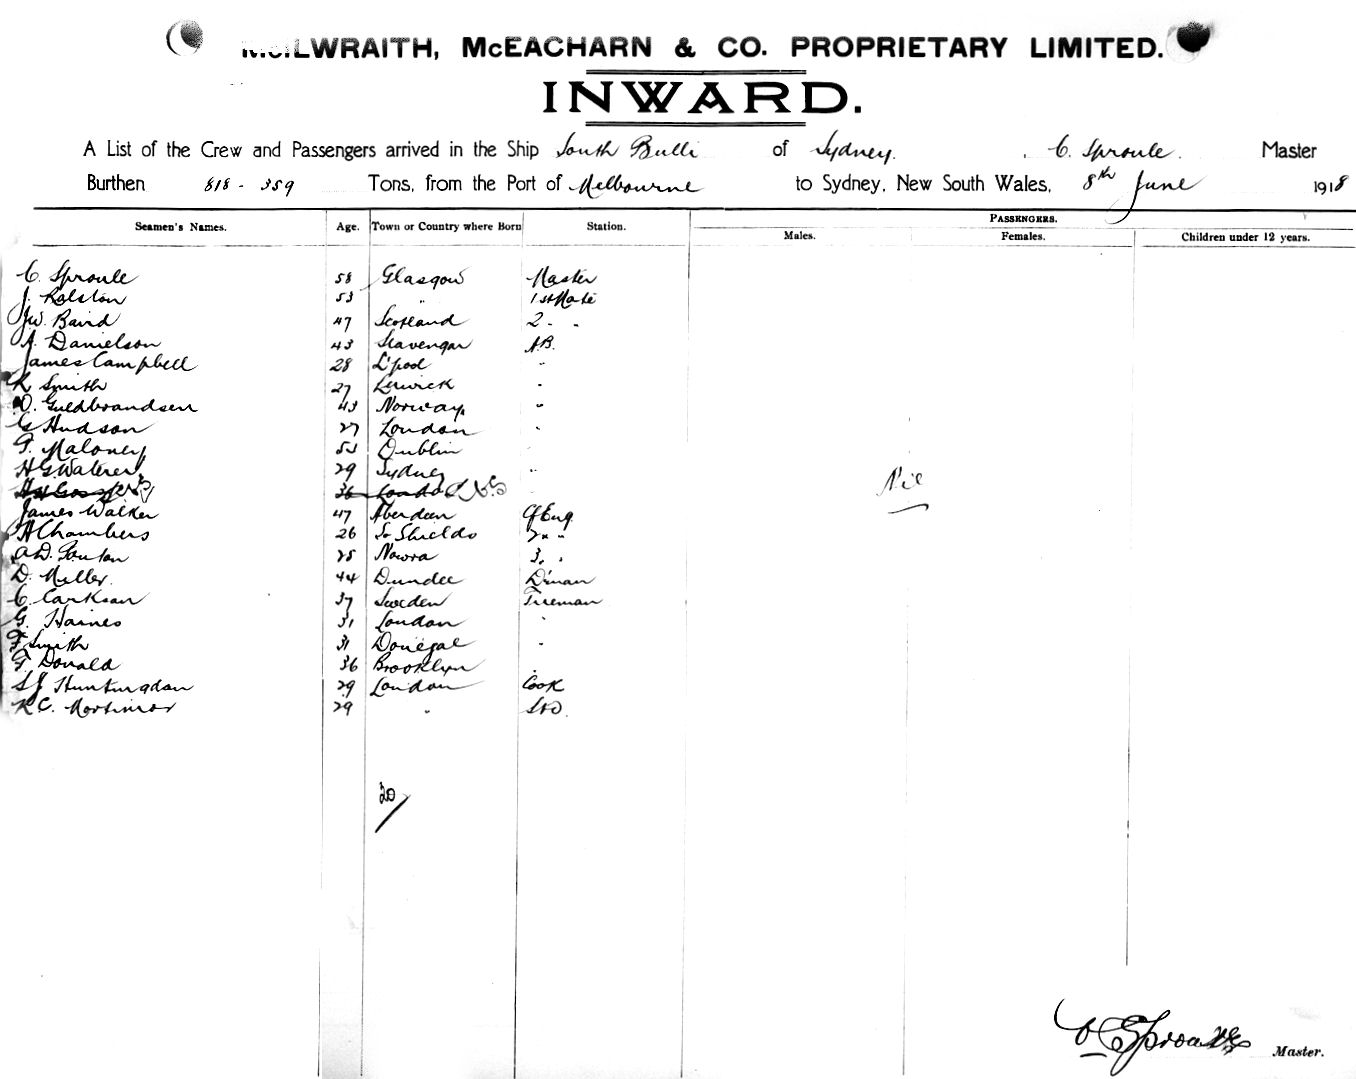 McILWRAITH, McEACHARN & CO. PROPRIETARY LIMITED.
INWARD.
A List of the Crew and Passengers arrived in the Ship South Bulli of Sydney. C. Sproule. Master
Burthen 818 - 359 Tons, from the Port of Melbourne to Sydney, New South Wales, 8th June 1918
PASSENGERS.
Seamen's Names. Age. Town or Country where Born Station. Males. Females. Children under 12 years.
C. Sproule 58 Glasgow Master
J. Ralston 53 " 1st Mate
J.W. Baird 47 Scotland 2 " "
A. Danielson 43 Stavenger A.B.
James Campbell 28 L'pool "
R Smith 27 Lerwick "
O. Guldbrandsen 43 Norway "
G Hudson 27 London "
P. Maloney 53 Dublin
H G Waterer 29 Sydney "
36 London
Nil
James Walker 47 Aberdeen Cf Eng
A Chambers 26 So Shields 2 " "
A.D. 25 Nowra 3 " "
D. Miller. 44 Dundee D'man
C. Carlsson 37 Sweden Fireman
G. Haines 31 London "
F Smith 31 Donegal "
F. Donald 36 Brooklyn "
S J Huntingdon 29 London Cook
R C. Mortimor 29 " Std.
20
C Sproule Master.